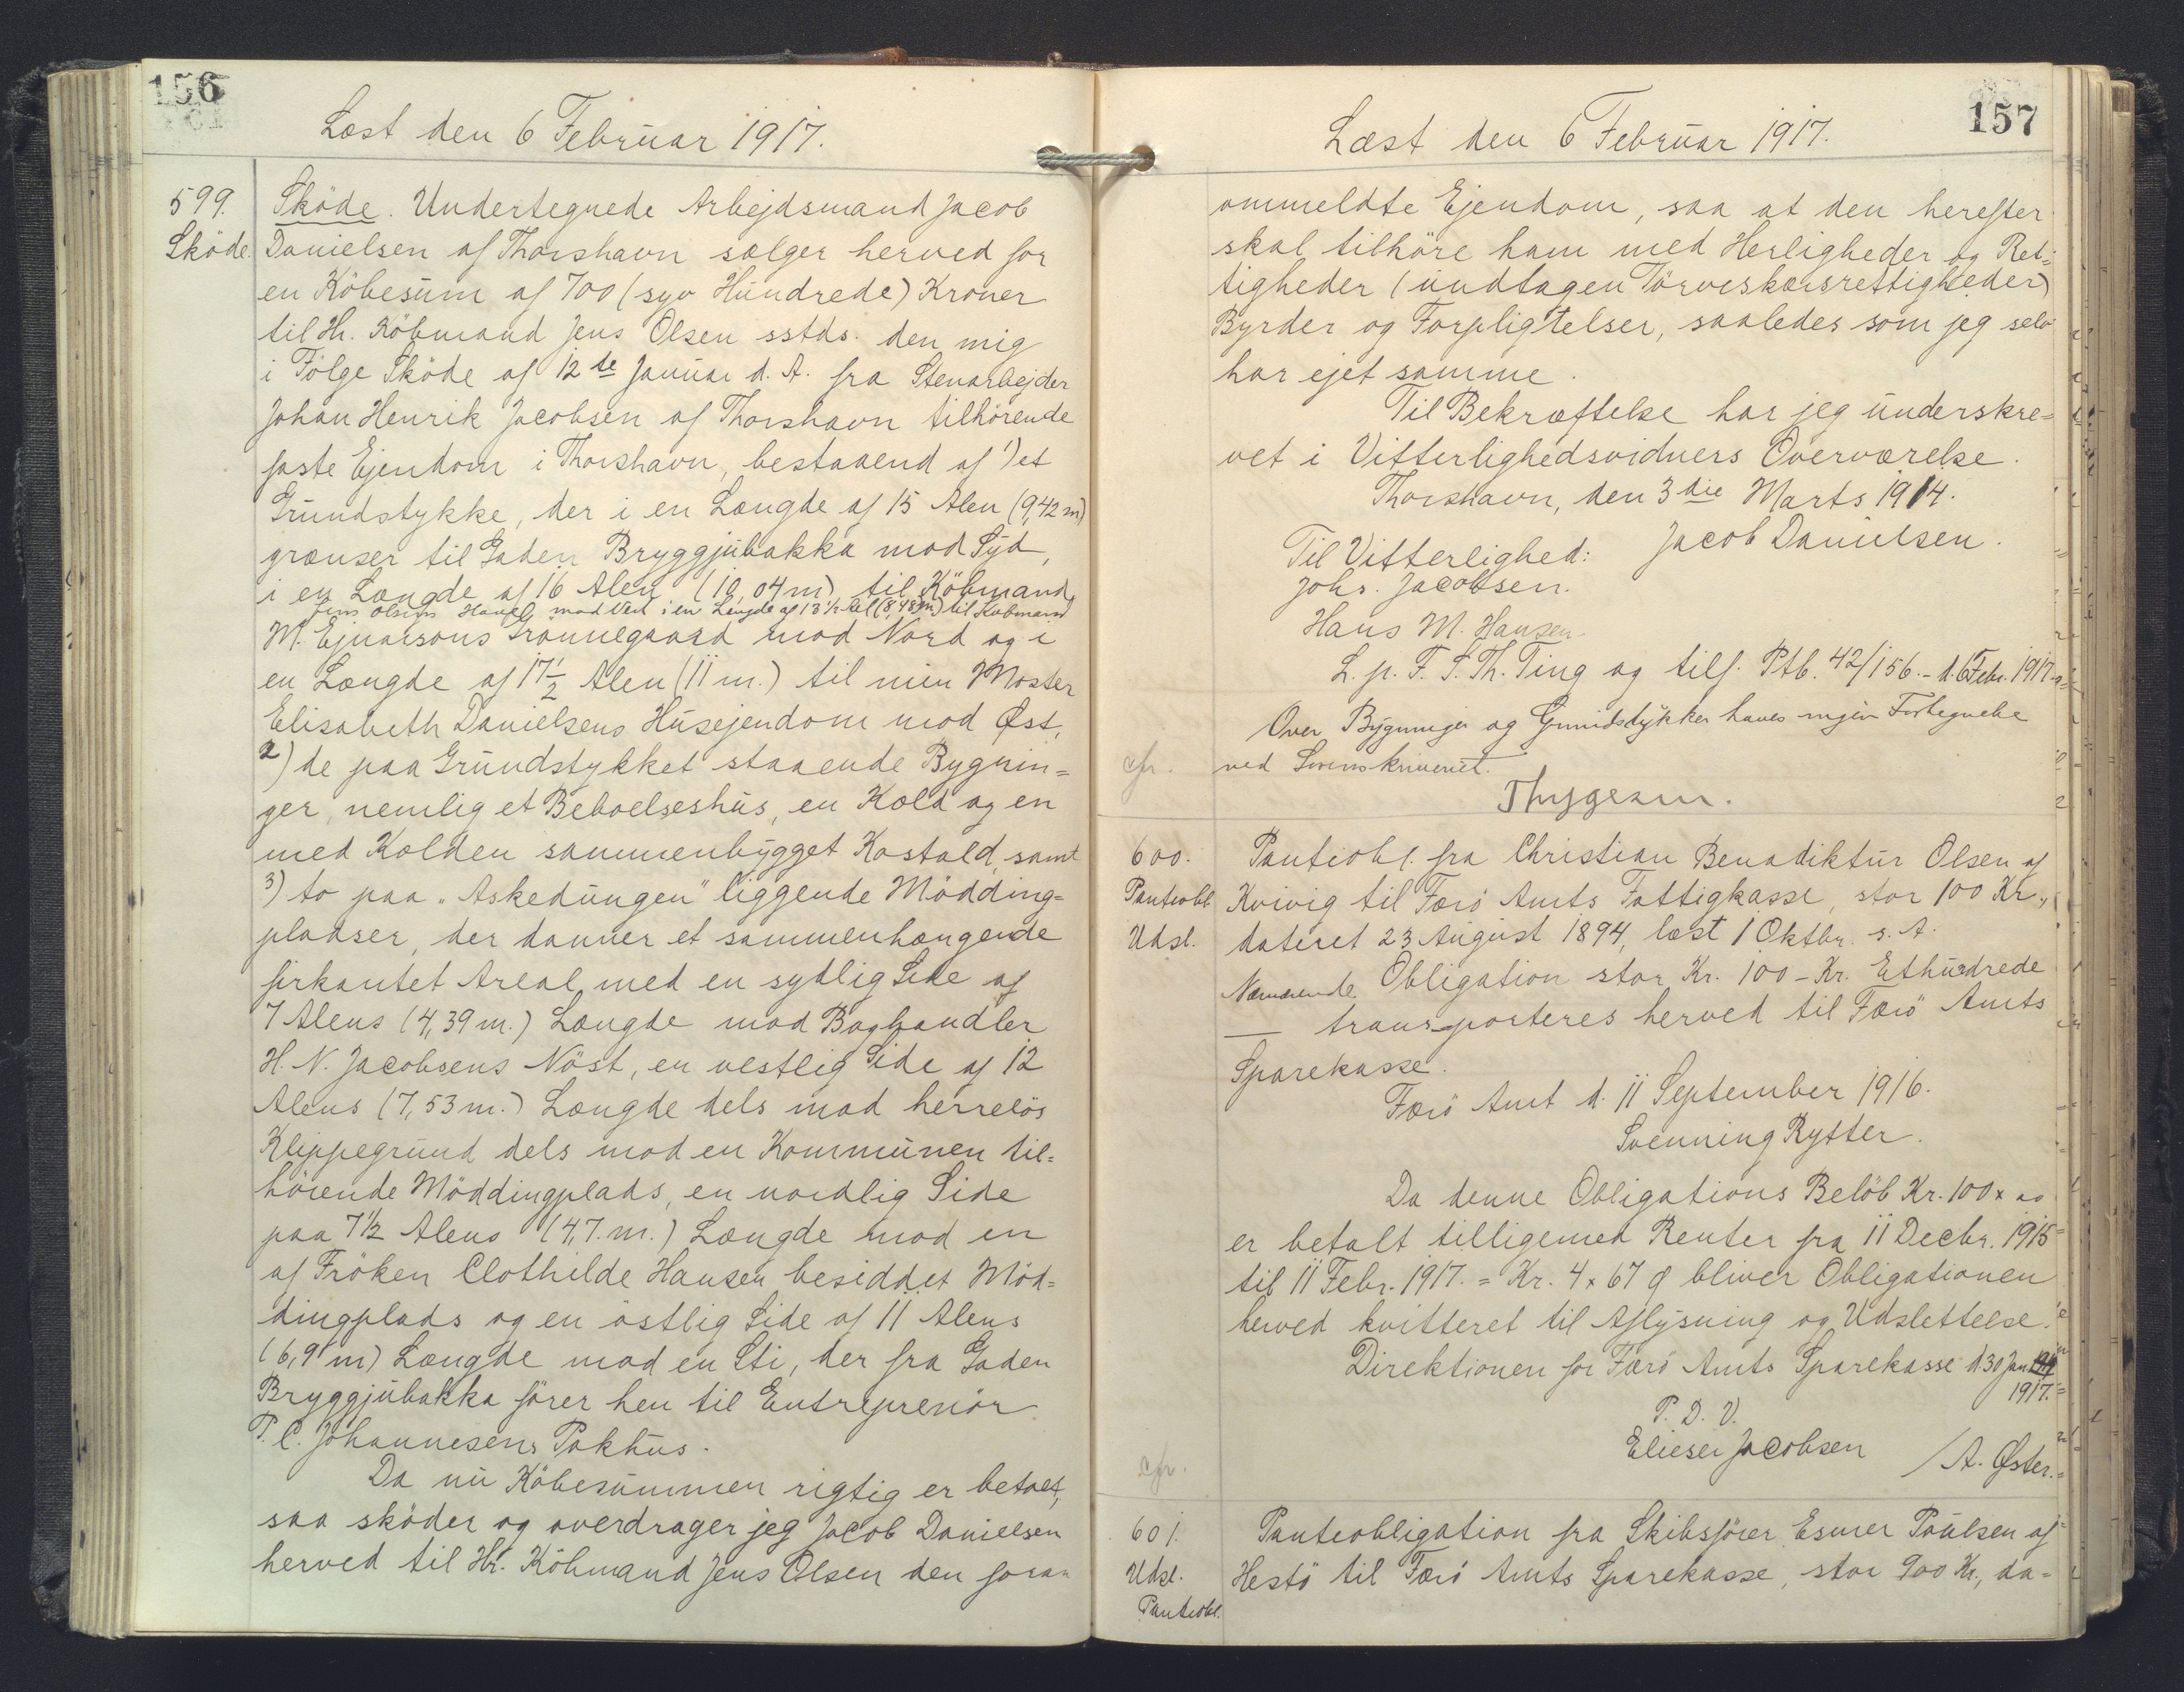 156
Læst den 6 Februar 1917.
599.
Sköde.
Sköde. Undertegnede Arbejdsmand Jacob
Danielsen af Thorshavn sælger herved for
en Köbesum af 700 (syv Hundrede) Kroner
til Hr. Köbmand Jens Olsen sstds. den mig
i Fölge Sköde af 12te Januar d. A. fra Stenarbejder
Johan Henrik Jacobsen af Thorshavn tilhörende
faste Ejendom i Thorshavn, bestaaend af 1) et
Grundstykke, der i en Længde af 15 Alen (9,42 m)
grænser til Gaden Bryggjubakka mod Syd,
i en Længde af 16 Alen (10,04 m) til Köbmand
Jens Olsens Have mod Vest i en Længde af 13½ Al (8,48 m) til Købmand
M. Ejnarsons Grannegaard mod Nord og i
en Længde af 17½ Alen (11 m.) til min Moster
Elisabeth Danielsens Husejendom mod Øst,
2) de paa Grundstykket staaende Bygnin=
ger, nemlig et Beboelseshus, en Kold og en
med Kolden sammenbygget Kostald, samt
3) to paa "Askedungen" liggende Mödding=
pladser, der danner et sammenhængende
firkantet Areal, med en sydlig Side af
7 Alens (4,39 m.) Længde mod Boghandler
H. N. Jacobsens Nöst, en vestlig Side af 12
Alens (7,53 m.) Længde dels mod herrelös
Klippegrund dels mod en Kommunen til=
hörende Möddingplads, en nordlig Side
paa 7½ Alens (4,7. m.) Længde mod en
af Fröken Clothilde Hansen besiddet Möd=
dingplads og en östlig Side af 11 Alens
(6,9 m) Længde mod en Sti, der fra Gaden
Bryggjubakka förer hen til Entreprenör
P. C. Johannesens Pakhus.
Da nu Köbesummen rigtig er betalt,
saa sköder og overdrager jeg Jacob Danielsen
herved til Hr. Köbmand Jens Olsen den foran
157
Læst den 6 Februar 1917.
ommeldte Ejendom, saa at den herefter
skal tilhöre ham med Herligheder og Ret=
tigheder (undtagen Törveskærsrettigheder)
Byrder og Forpligtelser, saaledes som jeg selv
har ejet samme.
Til Bekræftelse har jeg underskre=
vet i Vitterlighedsvidners Overværelse.
Thorshavn, den 3die Marts 1914.
Jacob Danielsen.
Til Vitterlighed:
Johs. Jacobsen.
Hans M. Hansen.
L. p. F. S. Th. Ting og tilf. Ptb. 42/156. - d. 6 Febr. 1917.
Over Bygninger og Grundstykker haves ingen Fortegnelse
cfr.
ved Sorenskriveriet.
Thygesen.
600.
Panteobl.
Udsl.
Panteobl. fra Christian Benadiktur Olsen af
Kvivig til Færö Amts Fattigkasse, stor 100 Kr.,
dateret 23 August 1894, læst 1 Oktbr. s. A.
Nærværende Obligation stor Kr. 100 - Kr. Ethundrede
— transporteres herved til Færö Amts
Sparekasse.
Færö Amt d. 11 September 1916.
Svenning Rytter.
Da denne Obligations Belöb Kr. 100 x
er betalt tilligemed Renter fra 11 Decbr. 1915
til 11 Febr. 1917. = Kr. 4 x 67 Ø bliver Obligationen
herved kvitteret til Aflysning og Udslettelse.
Direktionen for Færö Amts Sparekasse d. 30 Jan.
1917.
P. D. V.
Elieser Jacobsen
/A. Øster.
cfr.
601.
Udsl.
Panteobl.
Panteobligation fra Skibsförer Esmer Poulsen af
Hestö til Færö Amts Sparekasse, stor 900 Kr., da=